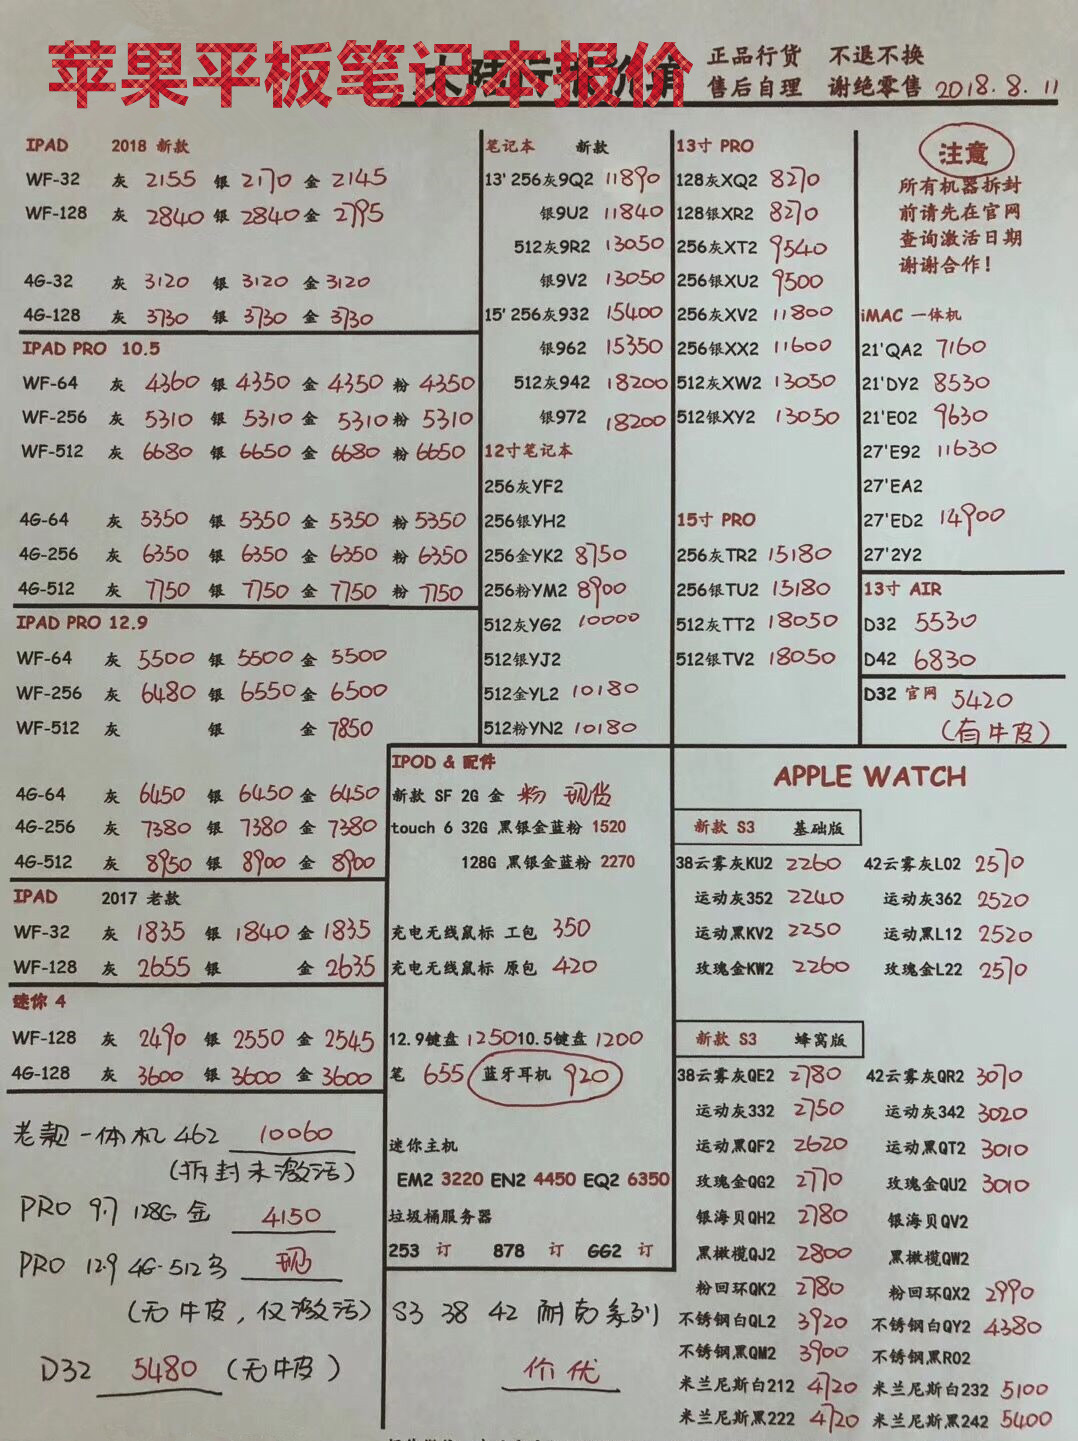 苹果平板笔记本报价
正品行货 不退不换
售后自理 谢绝零售 2018.8.11
IPAD 2018 新款
WF-32 灰 2155 银 2170 金 2145
WF-128 灰 2840 银 2840 金 2795
4G-32 灰 3120 银 3120 金 3120
4G-128 灰 3730 银 3730 金 3730
IPAD PRO 10.5
WF-64 灰 4360 银 4350 金 4350 粉 4350
WF-256 灰 5310 银 5310 金 5310 粉 5310
WF-512 灰 6680 银 6650 金 6680 粉 6650
4G-64 灰 5350 银 5350 金 5350 粉 5350
4G-256 灰 6350 银 6350 金 6350 粉 6350
4G-512 灰 7750 银 7750 金 7750 粉 7750
IPAD PRO 12.9
WF-64 灰 5500 银 5500 金 5500
WF-256 灰 6480 银 6550 金 6500
WF-512 灰 银 金 7850
4G-64 灰 6450 银 6450 金 6450
4G-256 灰 7380 银 7380 金 7380
4G-512 灰 8950 银 8900 金 8900
IPAD 2017 老款
WF-32 灰 1835 银 1840 金 1835
WF-128 灰 2655 银 金 2635
迷你 4
WF-128 灰 2490 银 2550 金 2545
4G-128 灰 3600 银 3600 金 3600
老款一体机 462 10060
(拆封未激活)
PRO 9.7 128G 金 4150
PRO 12.9 4G-512 现
(无牛皮,仅激活)
D32 5480 (无牛皮)
笔记本 新款
13' 256灰9Q2 11890
银9U2 11840
512灰9R2 13050
银9V2 13050
15' 256灰932 15400
银962 15350
512灰942 18200
银972 18200
12寸笔记本
256灰YF2
256银YH2
256金YK2 8750
256粉YM2 8900
512灰YG2 10000
512银YJ2
512金YL2 10180
512粉YN2 10180
13寸 PRO
128灰XQ2 8270
128银XR2 8270
256灰XT2 9540
256银XU2 9500
256灰XV2 11800
256银XX2 11600
512灰XW2 13050
512银XY2 13050
15寸 PRO
256灰TR2 15180
256银TU2 15180
512灰TT2 18050
512银TV2 18050
注意
所有机器拆封
前请先在官网
查询激活日期
谢谢合作!
iMAC 一体机
21'QA2 7160
21'DY2 8530
21'E02 9630
27'E92 11630
27'EA2
27'ED2 14900
27'2Y2
13寸 AIR
D32 5530
D42 6830
D32 官网 5420
(有牛皮)
IPOD & 配件
新款 SF 2G 金 粉 现货
touch 6 32G 黑银金蓝粉 1520
128G 黑银金蓝粉 2270
充电无线鼠标 工包 350
充电无线鼠标 原包 420
12.9键盘 1250 10.5键盘 1200
笔 655 蓝牙耳机 920
迷你主机
EM2 3220 EN2 4450 EQ2 6350
垃圾桶服务器
253 订 878 订 GG2 订
S3 38 42 耐克系列
价优
APPLE WATCH
新款 S3 基础版
38云雾灰KU2 2260 42云雾灰L02 2570
运动灰352 2240 运动灰362 2520
运动黑KV2 2250 运动黑L12 2520
玫瑰金KW2 2260 玫瑰金L22 2570
新款 S3 蜂窝版
38云雾灰QE2 2780 42云雾灰QR2 3070
运动灰332 2750 运动灰342 3020
运动黑QF2 2620 运动黑QT2 3010
玫瑰金QG2 2770 玫瑰金QU2 3010
银海贝QH2 2780 银海贝QV2
黑橄榄QJ2 2800 黑橄榄QW2
粉回环QK2 2780 粉回环QX2 2990
不锈钢白QL2 3920 不锈钢白QY2 4380
不锈钢黑QM2 3900 不锈钢黑R02
米兰尼斯白212 4720 米兰尼斯白232 5100
米兰尼斯黑222 4720 米兰尼斯黑242 5400